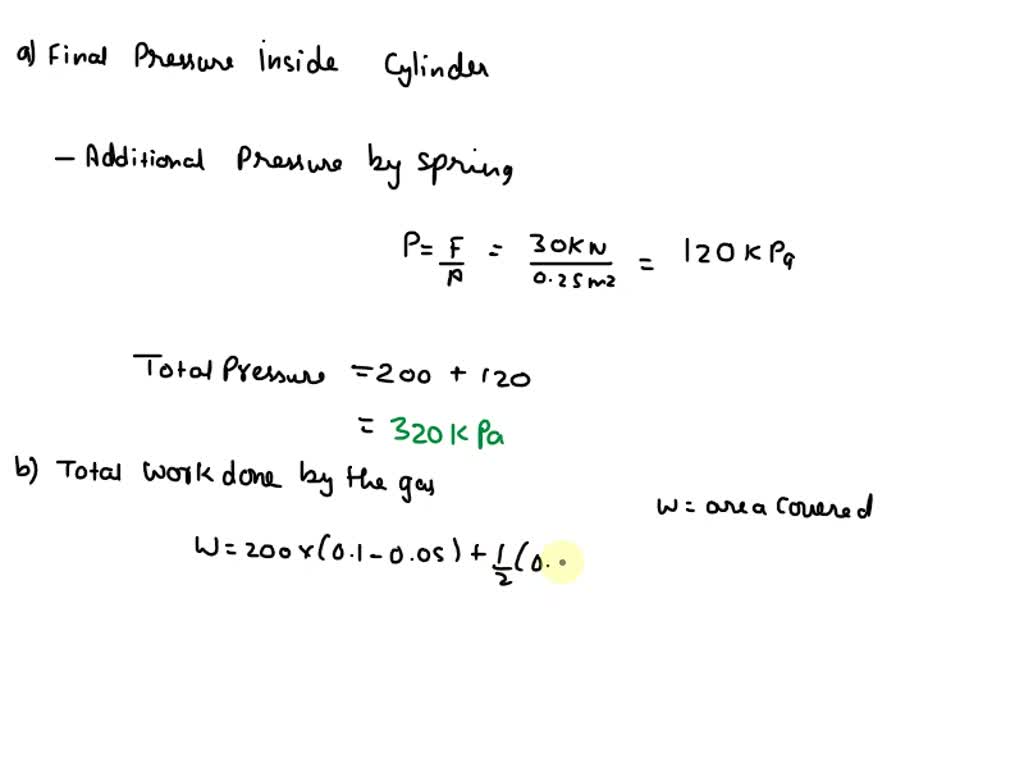 a) Final Pressure inside Cylinder
- Additional Pressure by spring
P = F/A = 30KN/0.25m2 = 120K Pa
Total Pressure = 200 + 120
= 320K Pa
b) Total work done by the gas
W = area covered
W = 200 x (0.1 - 0.05) + 1/2 (0.